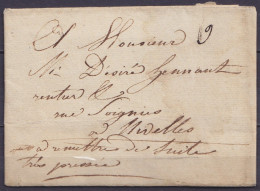 A Monsieur 9
Mr Désiré Gennaut
rentier &
rue Soignies
à Nivelles
à remettre de suite
très pressée